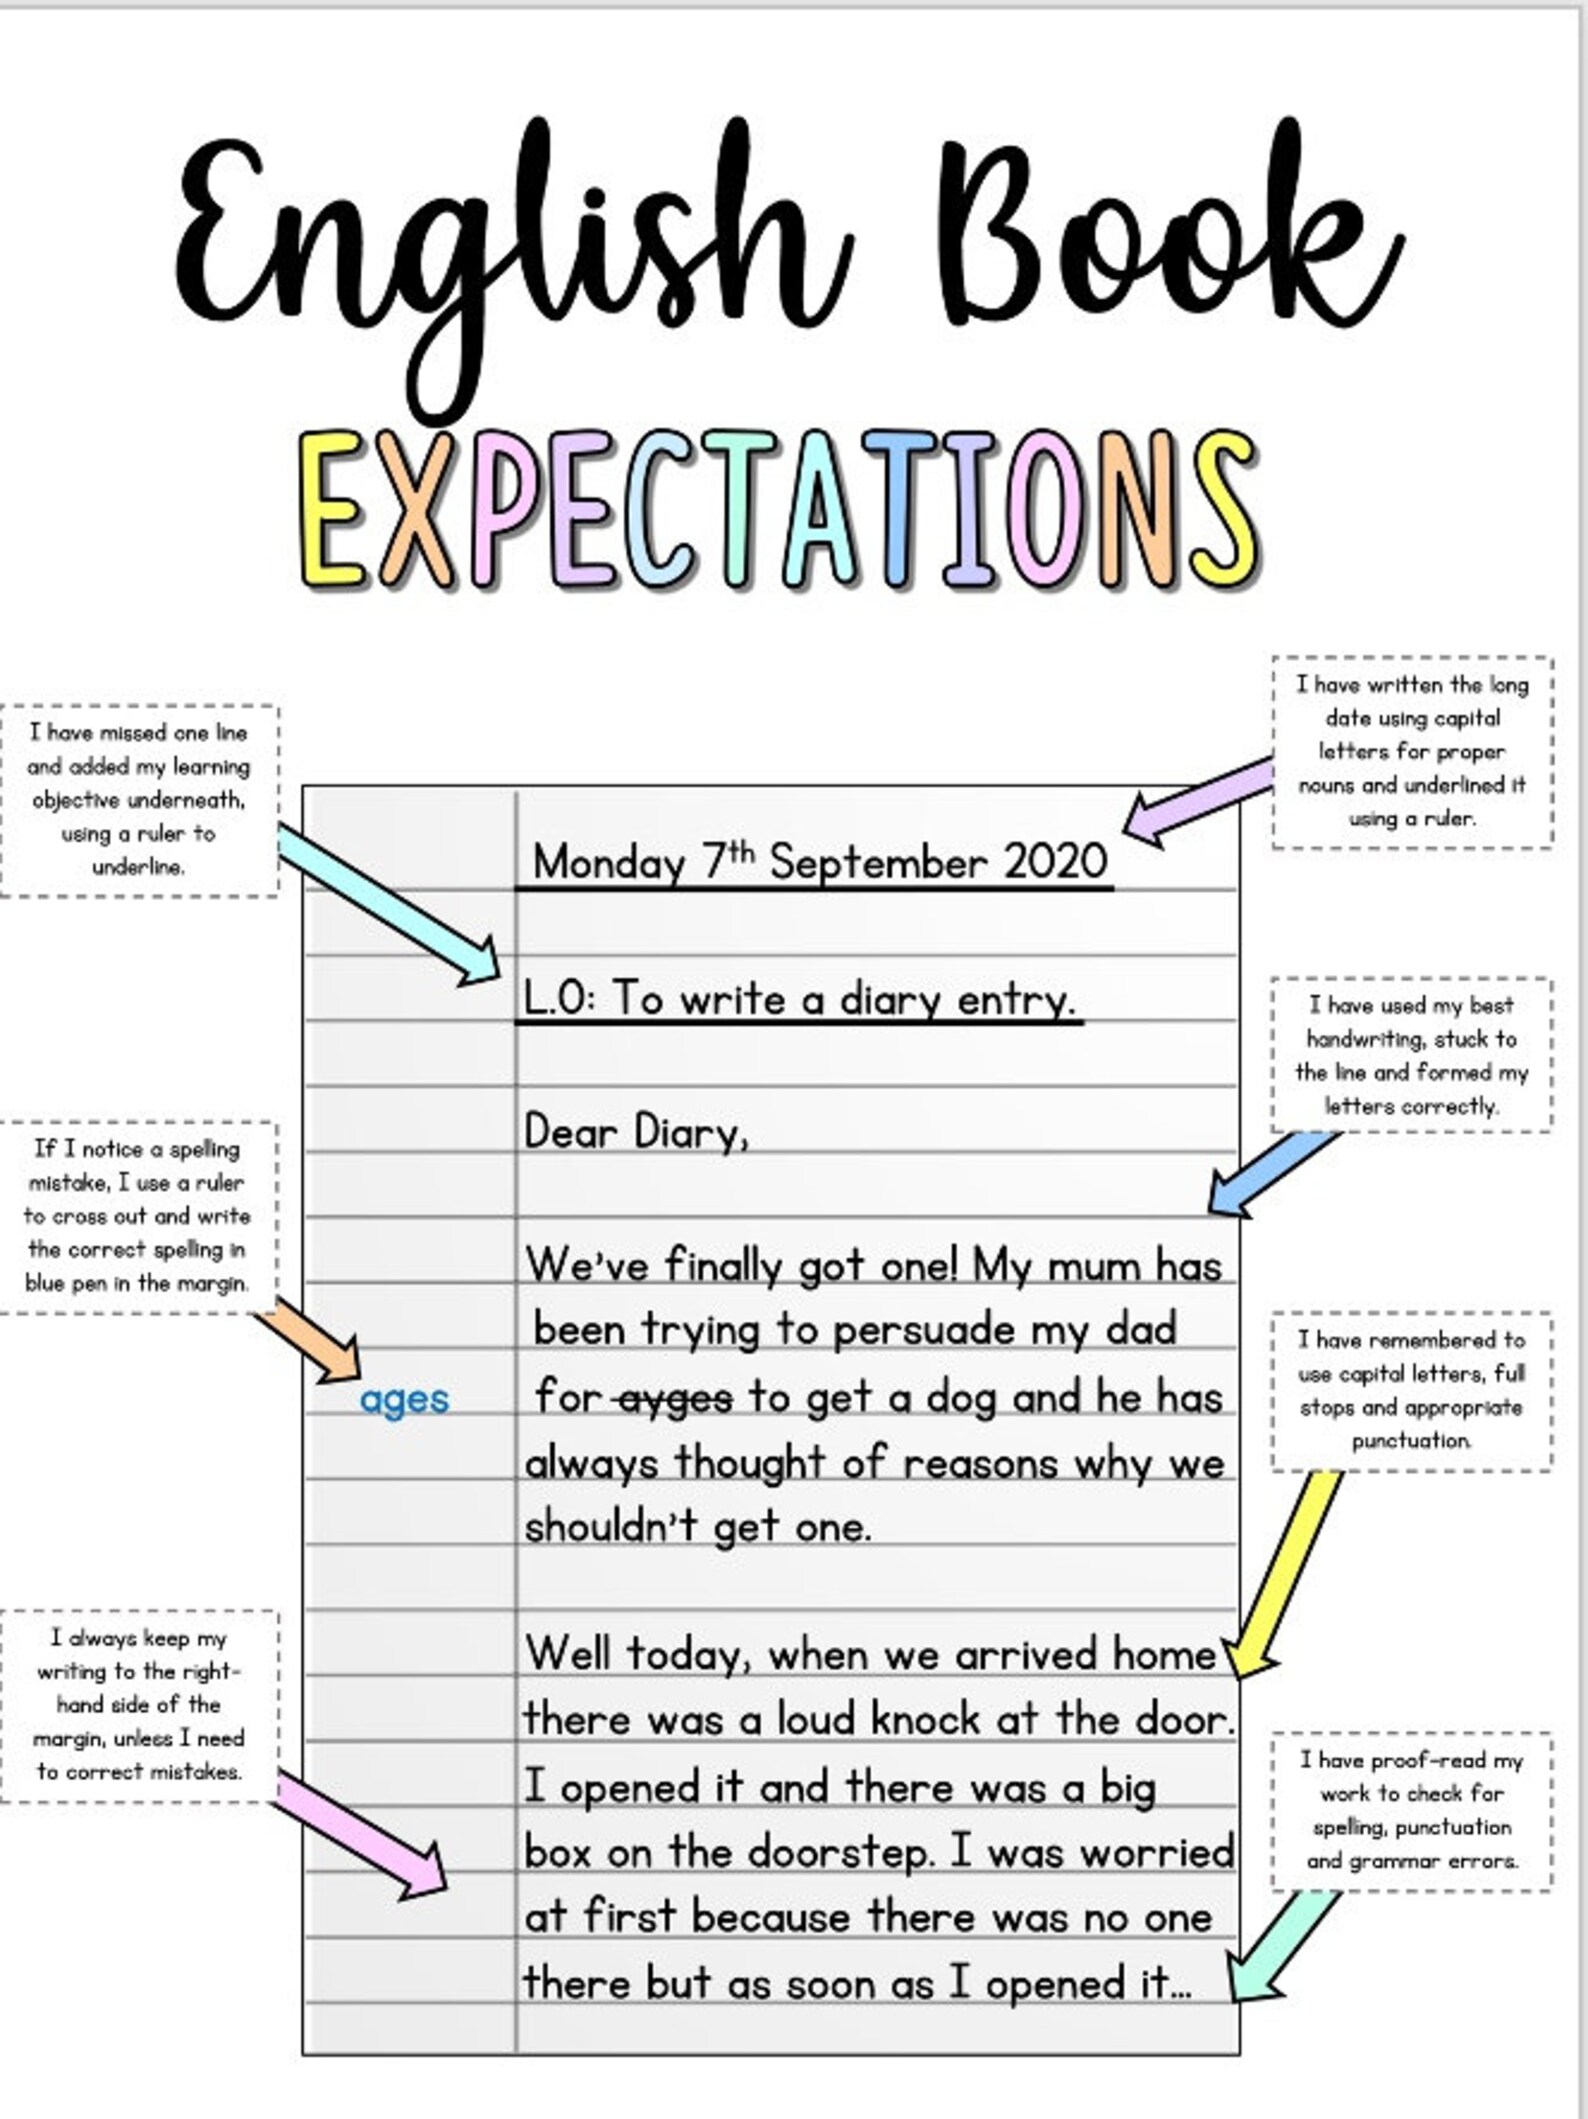 English Book
EXPECTATIONS
I have written the long
date using capital
letters for proper
nouns and underlined it
using a ruler.
I have missed one line
and added my learning
objective underneath,
using a ruler to
underline.
Monday 7th September 2020
L.O: To write a diary entry.
I have used my best
handwriting, stuck to
the line and formed my
letters correctly.
Dear Diary,
If I notice a spelling
mistake, I use a ruler
to cross out and write
the correct spelling in
blue pen in the margin.
We've finally got one! My mum has
been trying to persuade my dad
ages
for ayges to get a dog and he has
always thought of reasons why we
shouldn't get one.
I have remembered to
use capital letters, full
stops and appropriate
punctuation.
I always keep my
writing to the right-
hand side of the
margin, unless I need
to correct mistakes.
Well today, when we arrived home
there was a loud knock at the door.
I opened it and there was a big
box on the doorstep. I was worried
at first because there was no one
there but as soon as I opened it...
I have proof-read my
work to check for
spelling, punctuation
and grammar errors.